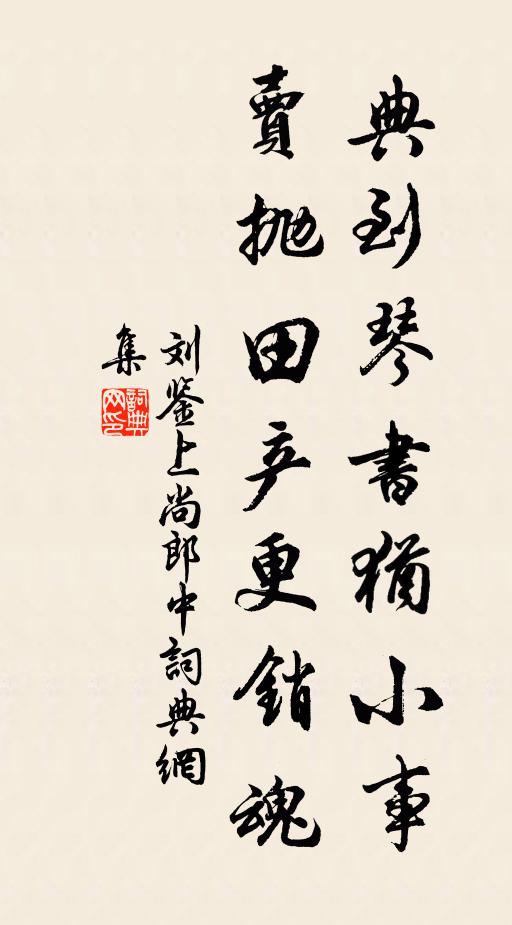 典到琴書猶小事
賣抛田产更銷魂
刘鉴上尚郎中詞典網
集
詞典网印